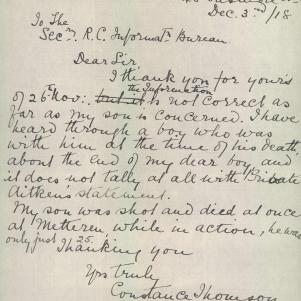 Dec. 3rd /18
To The
Secy. R.C. Informatn Bureau
Dear Sir
I thank you for yours
of 26th Nov: but it the information is not correct as
far as my son is concerned. I have
heard through a boy who was
with him at the time of his death
about the end of my dear boy and
it does not tally at all with Private
Aitken's statement.
My son was shot and died at once
at Meteren, while in action, he was
only just 25. Thanking you
Yrs Truly
Constance Thomson